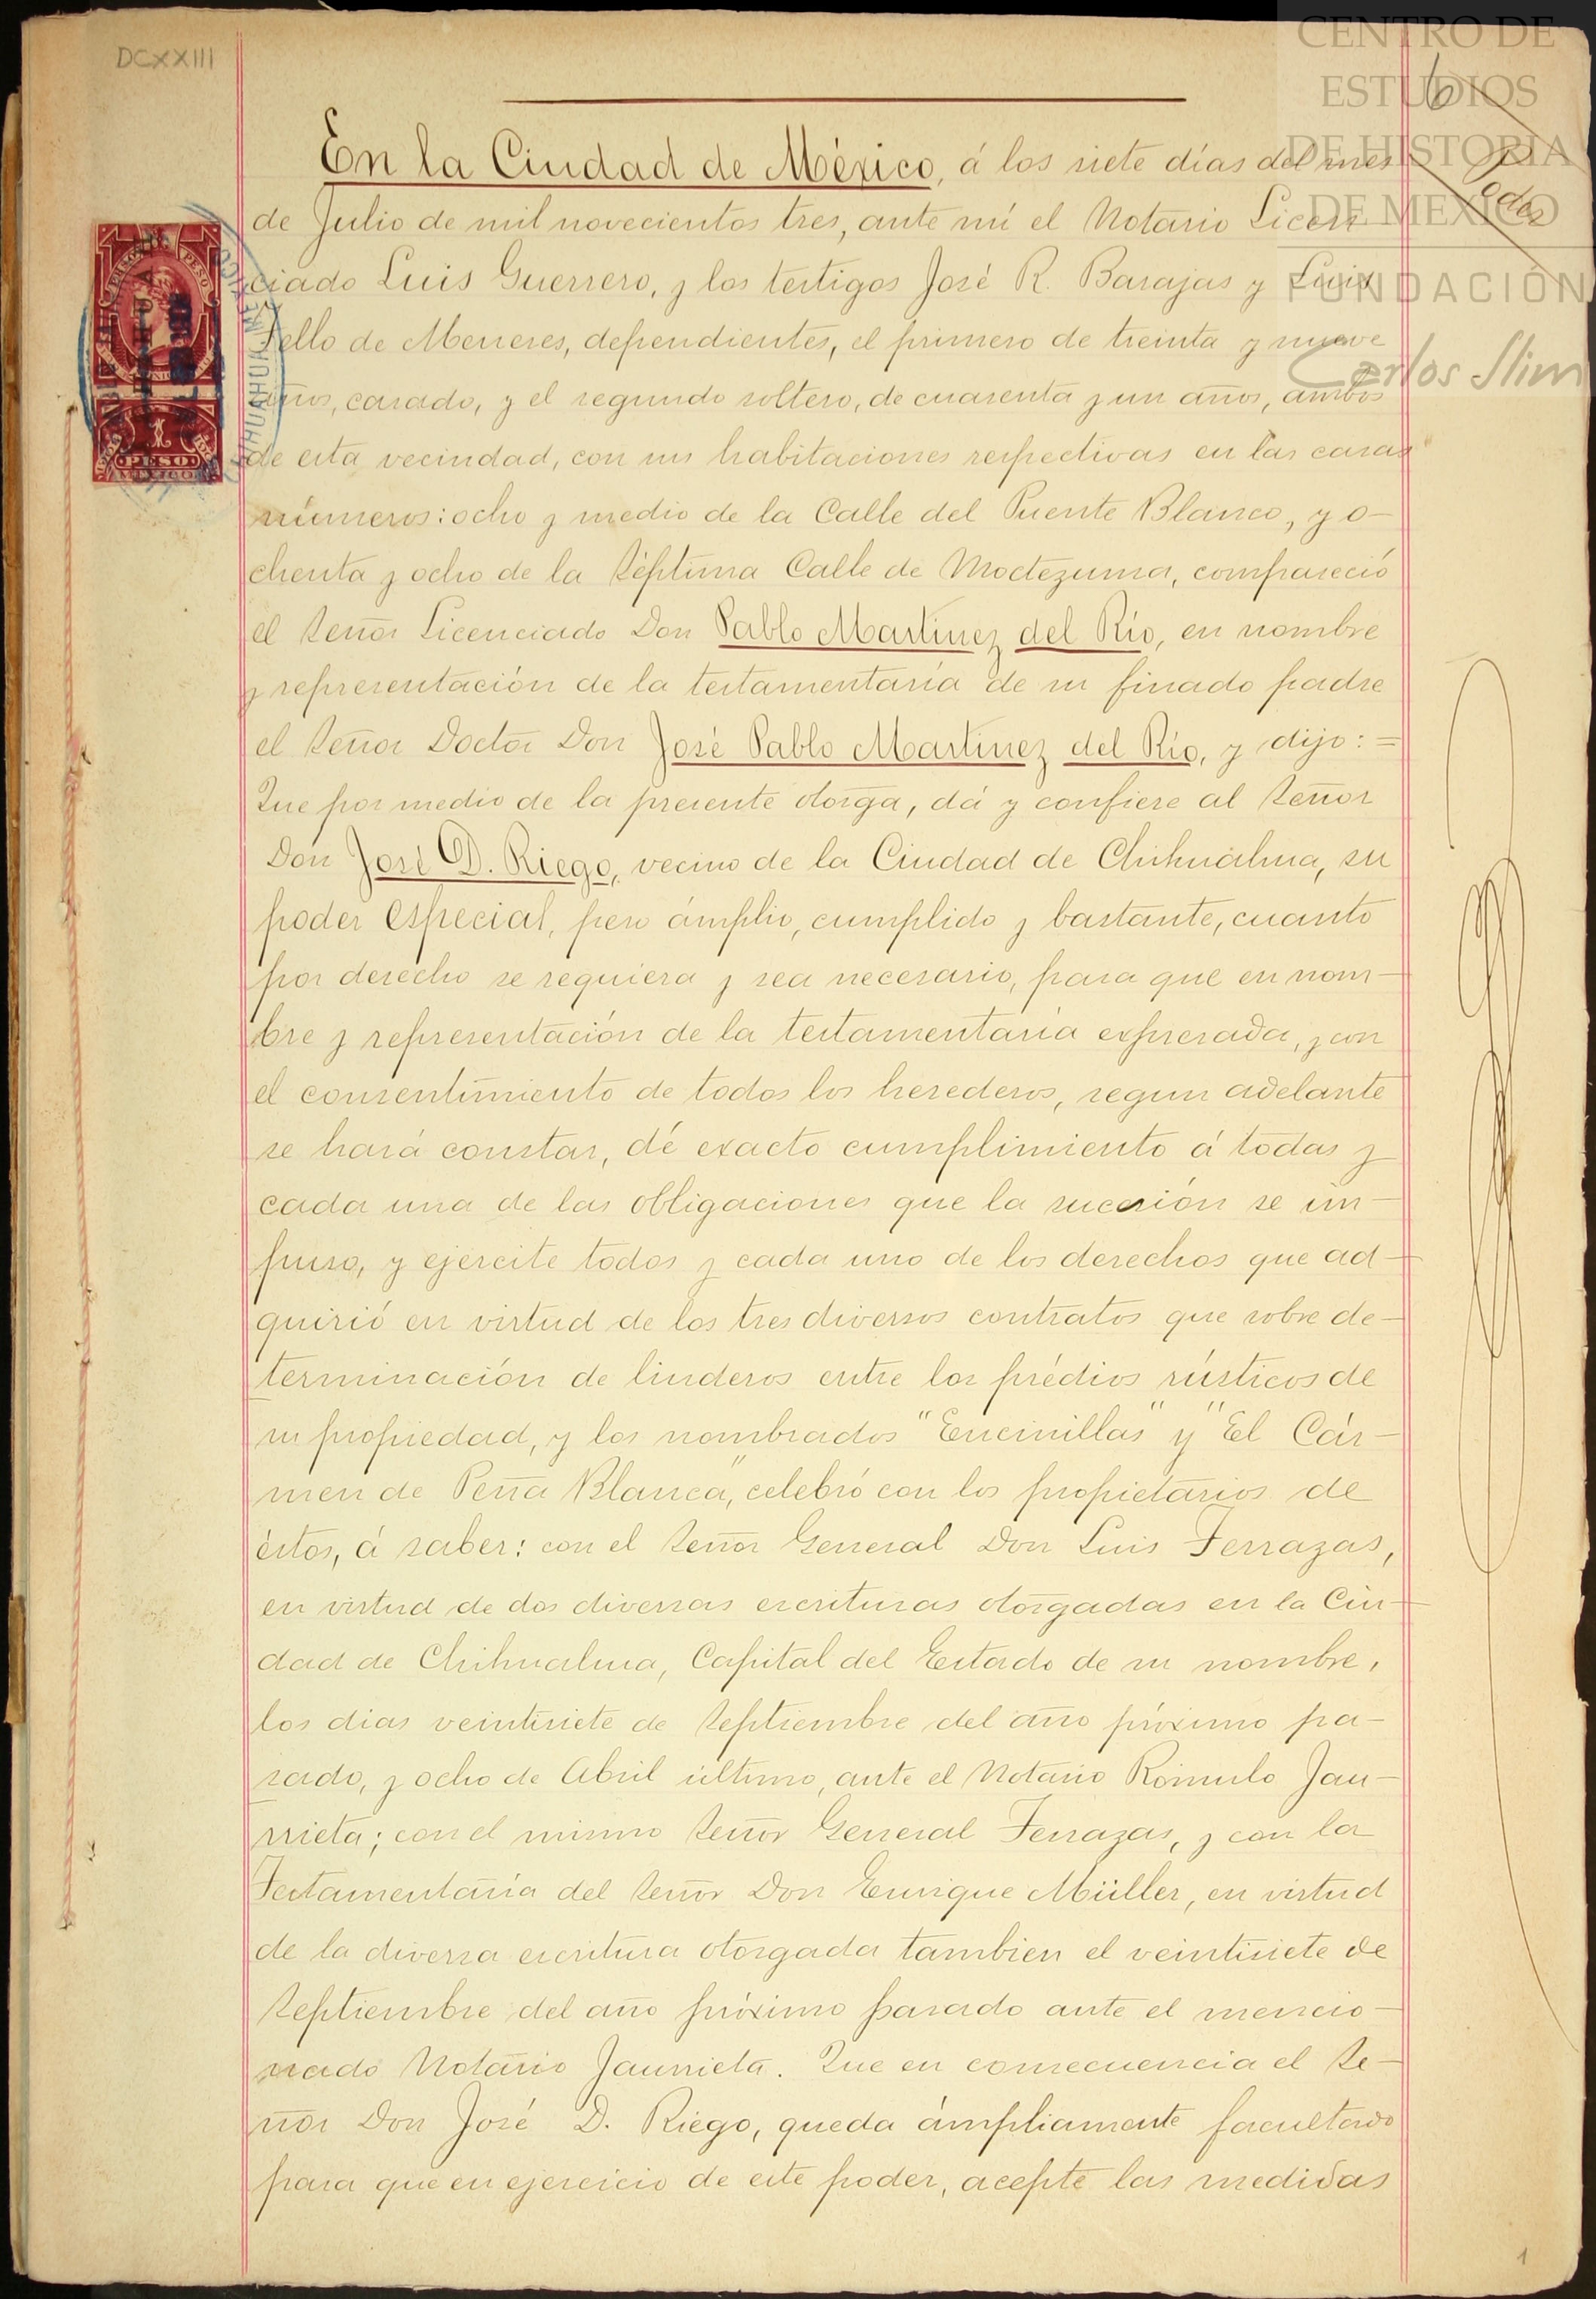 DCXXIII
CENTRO DE
ESTUDIOS
DE HISTORIA
DE MÉXICO
FUNDACIÓN
Carlos Slim
6
Poder
En la Ciudad de México, á los siete días del mes
de Julio de mil novecientos tres, ante mí el Notario Licen
ciado Luis Guerrero, y los testigos José R. Barajas y Luis
Tello de Meneses, dependientes, el primero de treinta y nueve
años, casado, y el segundo soltero, de cuarenta y un años, ambos
de esta vecindad, con sus habitaciones respectivas en las casas
números: ocho y medio de la Calle del Puente Blanco, y o-
chenta y ocho de la Séptima Calle de Moctezuma, compareció
el Señor Licenciado Don Pablo Martinez del Río, en nombre
y representación de la testamentaría de su finado padre
el Señor Doctor Don José Pablo Martinez del Río, y dijo: =
Que por medio de la presente otorga, dá y confiere al Señor
Don José D. Riego, vecino de la Ciudad de Chihuahua, su
poder especial, pero ámplio, cumplido y bastante, cuanto
por derecho se requiera y sea necesario, para que en nom-
bre y representación de la testamentaría expresada, y con
el consentimiento de todos los herederos, segun adelante
se hará constar, dé exacto cumplimiento á todas y
cada una de las obligaciones que la sucesión se im-
puso, y ejercite todos y cada uno de los derechos que ad-
quirió en virtud de los tres diversos contratos que sobre de-
terminación de linderos entre los prédios rústicos de
su propiedad, y los nombrados "Encinillas" y "El Cár-
men de Peña Blanca", celebró con los propietarios de
éstos, á saber: con el Señor General Don Luis Terrazas,
en virtud de dos diversas escrituras otorgadas en la Ciu-
dad de Chihuahua, Capital del Estado de su nombre,
los dias veintisiete de Septiembre del año próximo pa-
sado, y ocho de Abril último, ante el Notario Rómulo Jau-
rrieta; con el mismo Señor General Terrazas, y con la
Testamentaría del Señor Don Enrique Müller, en virtud
de la diversa escritura otorgada tambien el veintisiete de
Septiembre del año próximo pasado ante el mencio-
nado Notario Jaurrieta. Que en consecuencia el Se-
ñor Don José D. Riego, queda ámpliamente facultado
para que en ejercicio de este poder, acepte las medidas
1
PESO
MEXICO